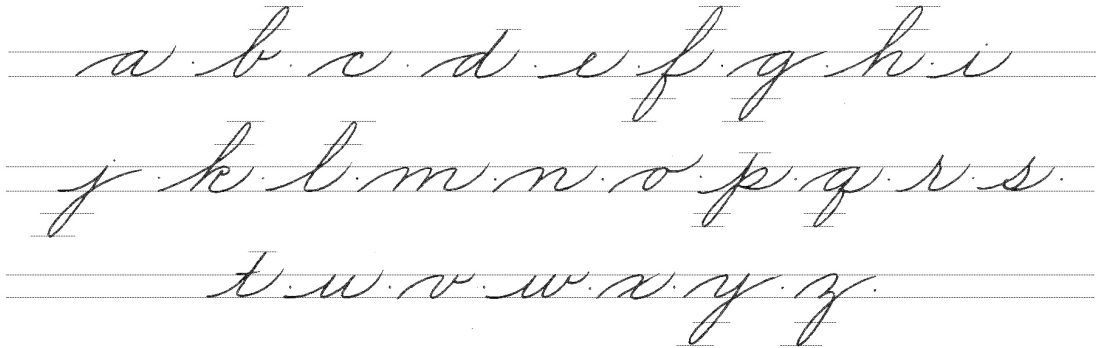 a · b · c · d · e · f · g · h · i
j · k · l · m · n · o · p · q · r · s ·
t · u · v · w · x · y · z ·